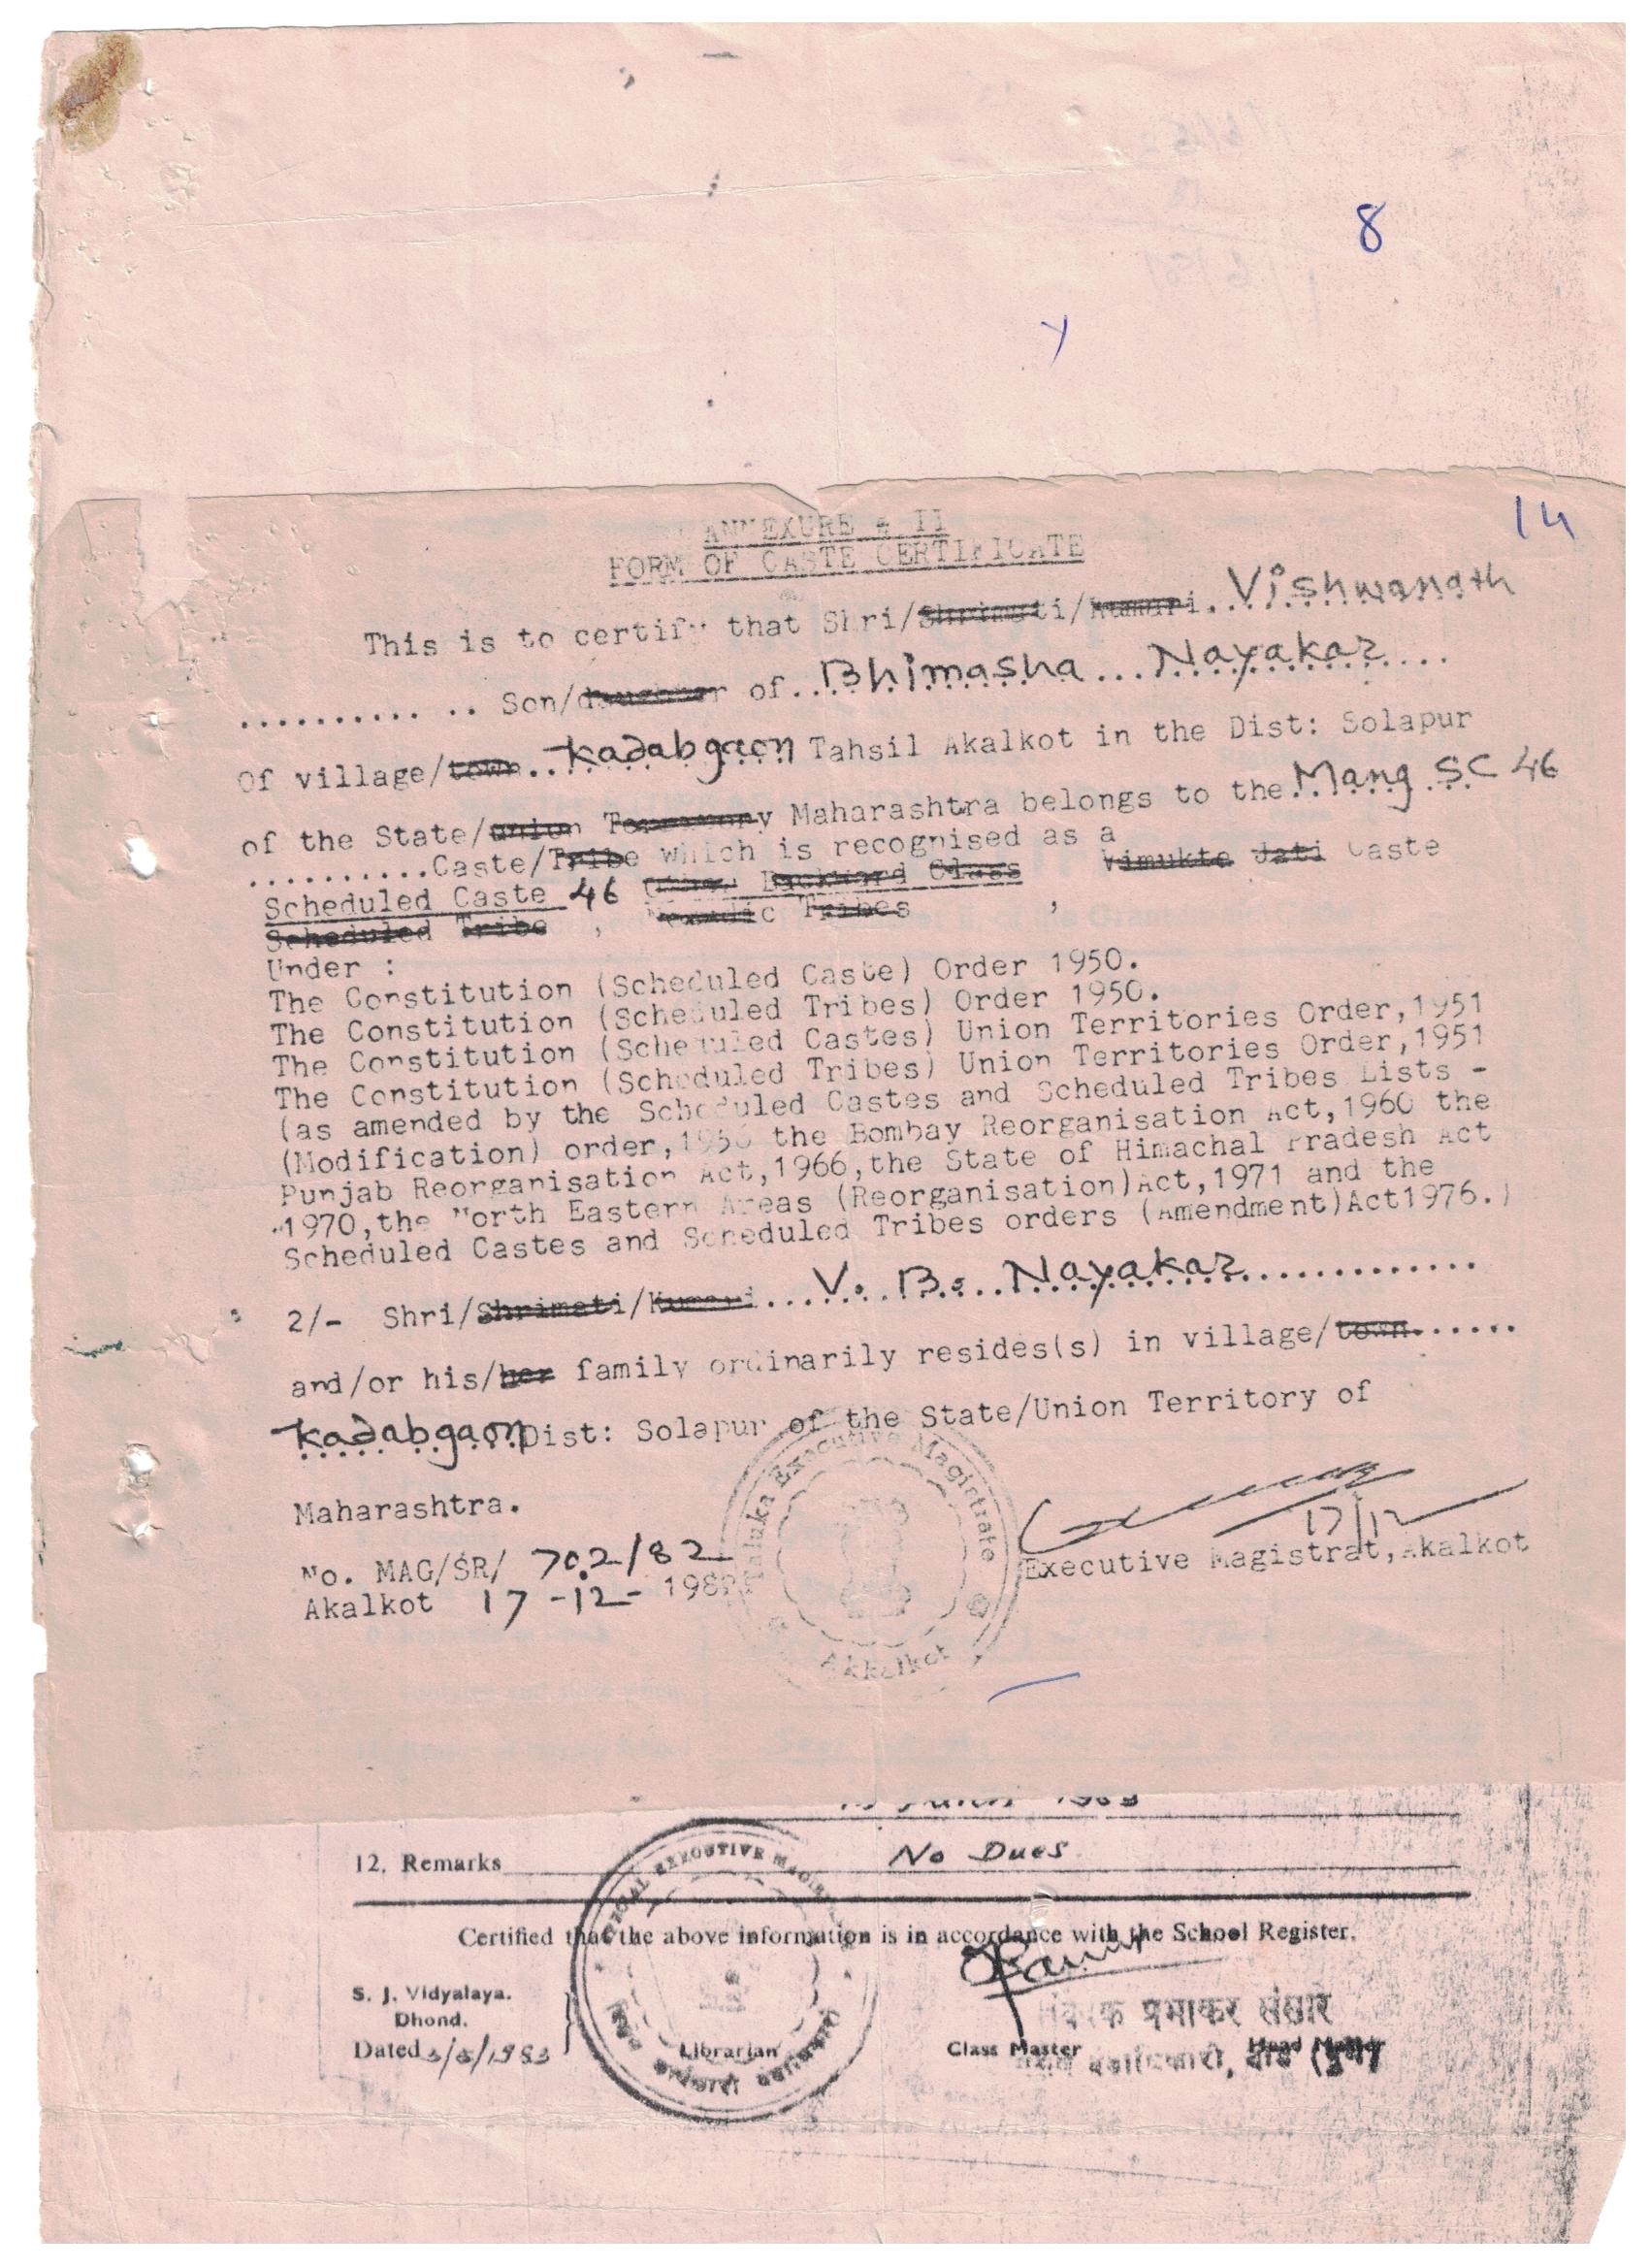 8
14
ANNEXURE - II
FORM OF CASTE CERTIFICATE
This is to certify that Shri/Shrimati/Kumari. Vishwanath
.......... .. Son/daughter of. Bhimasha ... Nayakar ....
Of village/town.. Kadabgaon Tahsil Akalkot in the Dist: Solapur
of the State/union Territory Maharashtra belongs to the. Mang SC 46
..........Caste/Tribe which is recognised as a
Scheduled Caste 46 Other Backward Class Vimukta Jati Caste
Scheduled Tribe , Nomadic Tribes ,
Under :
The Constitution (Scheduled Caste) Order 1950.
The Constitution (Scheduled Tribes) Order 1950.
The Constitution (Scheduled Castes) Union Territories Order,1951
The Constitution (Scheduled Tribes) Union Territories Order,1951
(as amended by the Scheduled Castes and Scheduled Tribes Lists -
(Modification) order,1956 the Bombay Reorganisation Act,1960 the
Punjab Reorganisation Act,1966,the State of Himachal Pradesh Act
1970,the North Eastern Areas (Reorganisation)Act,1971 and the
Scheduled Castes and Scheduled Tribes orders (Amendment)Act1976.)
2/- Shri/Shrimati/Kumari.... V. B. Nayakar ..............
and/or his/her family ordinarily resides(s) in village/town......
Kadabgaon Dist: Solapur of the State/Union Territory of
Maharashtra.
Taluka Executive Magistrate
Akkalkot
17/12
No. MAG/SR/ 702/82
Executive Magistrat,Akalkot
Akalkot 17-12- 1982
1983
12. Remarks No Dues
EXECUTIVE
Certified that the above information is in accordance with the School Register.
S. J. Vidyalaya.
Dhond.
प्रभाकर संसारे
Dated 3/5/1983 Librarian Class Master Head Master